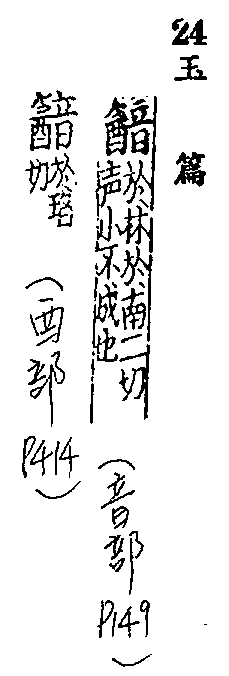 24
玉篇
韽於林於南二切
声小不成也
(音部
P149)
韽於琀
切
(酉部
P414)